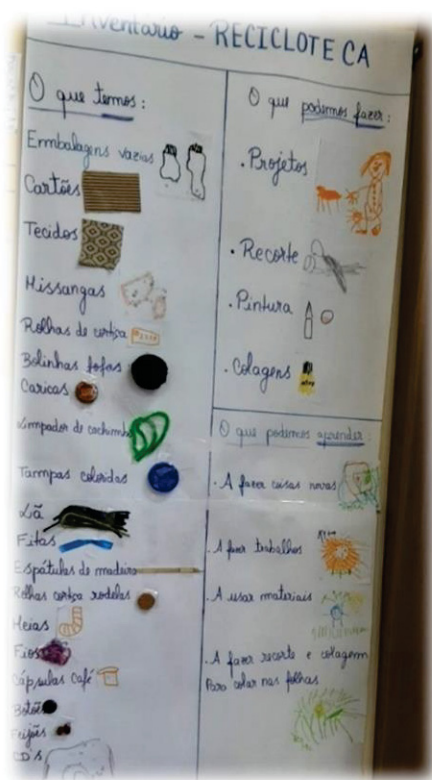 Inventário - RECICLOTECA
O que temos:
Embalagens vazias
Cartões
Tecidos
Missangas
Rolhas de cortiça
Bolinhas fofas
Caricas
Limpador de cachimbo
Tampas coloridas
Lã
Fitas
Espátulas de madeira
Rolhas cortiça rodelas
Meias
Fios
Cápsulas café
Botões
Feijões
CD's
O que podemos fazer:
. Projetos
. Recorte
. Pintura
. Colagens
O que podemos aprender:
. A fazer coisas novas
. A fazer trabalhos
. A usar materiais
. A fazer recorte e colagem
Para colar nas folhas